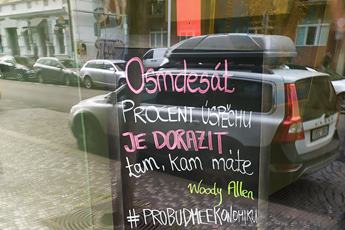 Osmdesát
PROCENT ÚSPĚCHU
JE DORAZIT
tam, kam máte
Woody Allen
#PROBUDMEEKONOMIKU